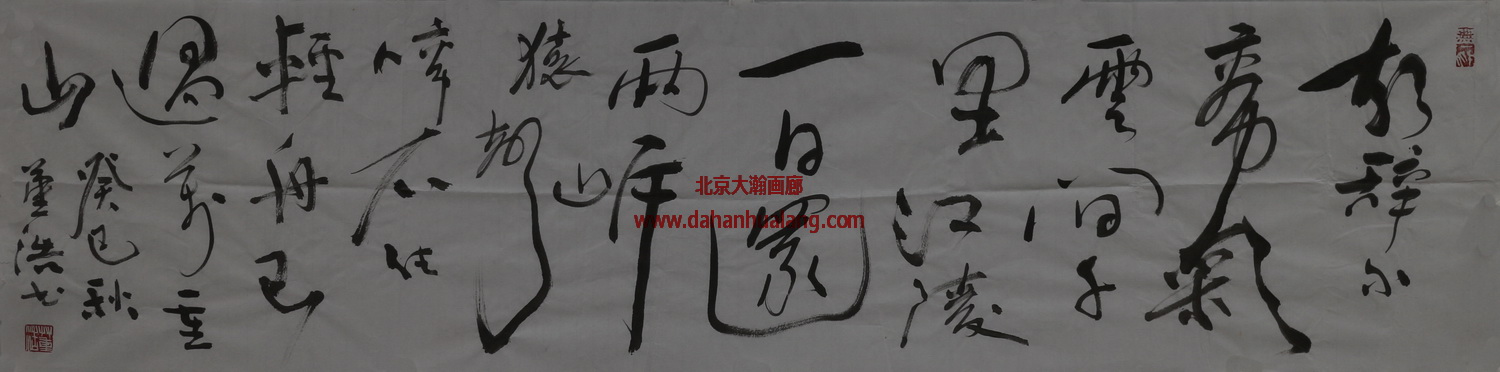 朝辭白
帝彩
雲間千
里江陵
一日還
兩岸
猿聲
啼不住
輕舟已
過萬重
山
癸巳秋
董浩书
北京大瀚画廊
www.dahanhualang.com